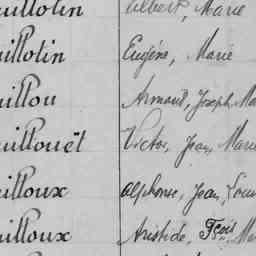 uillotin Albert, Marie
uillotin Eugène, Marie
uillou Armand, Joseph, Ma
uillouët Victor, Jean, Marie
uilloux Alphonse, Jean, Loui
uilloux Aristide, Fçois Ma